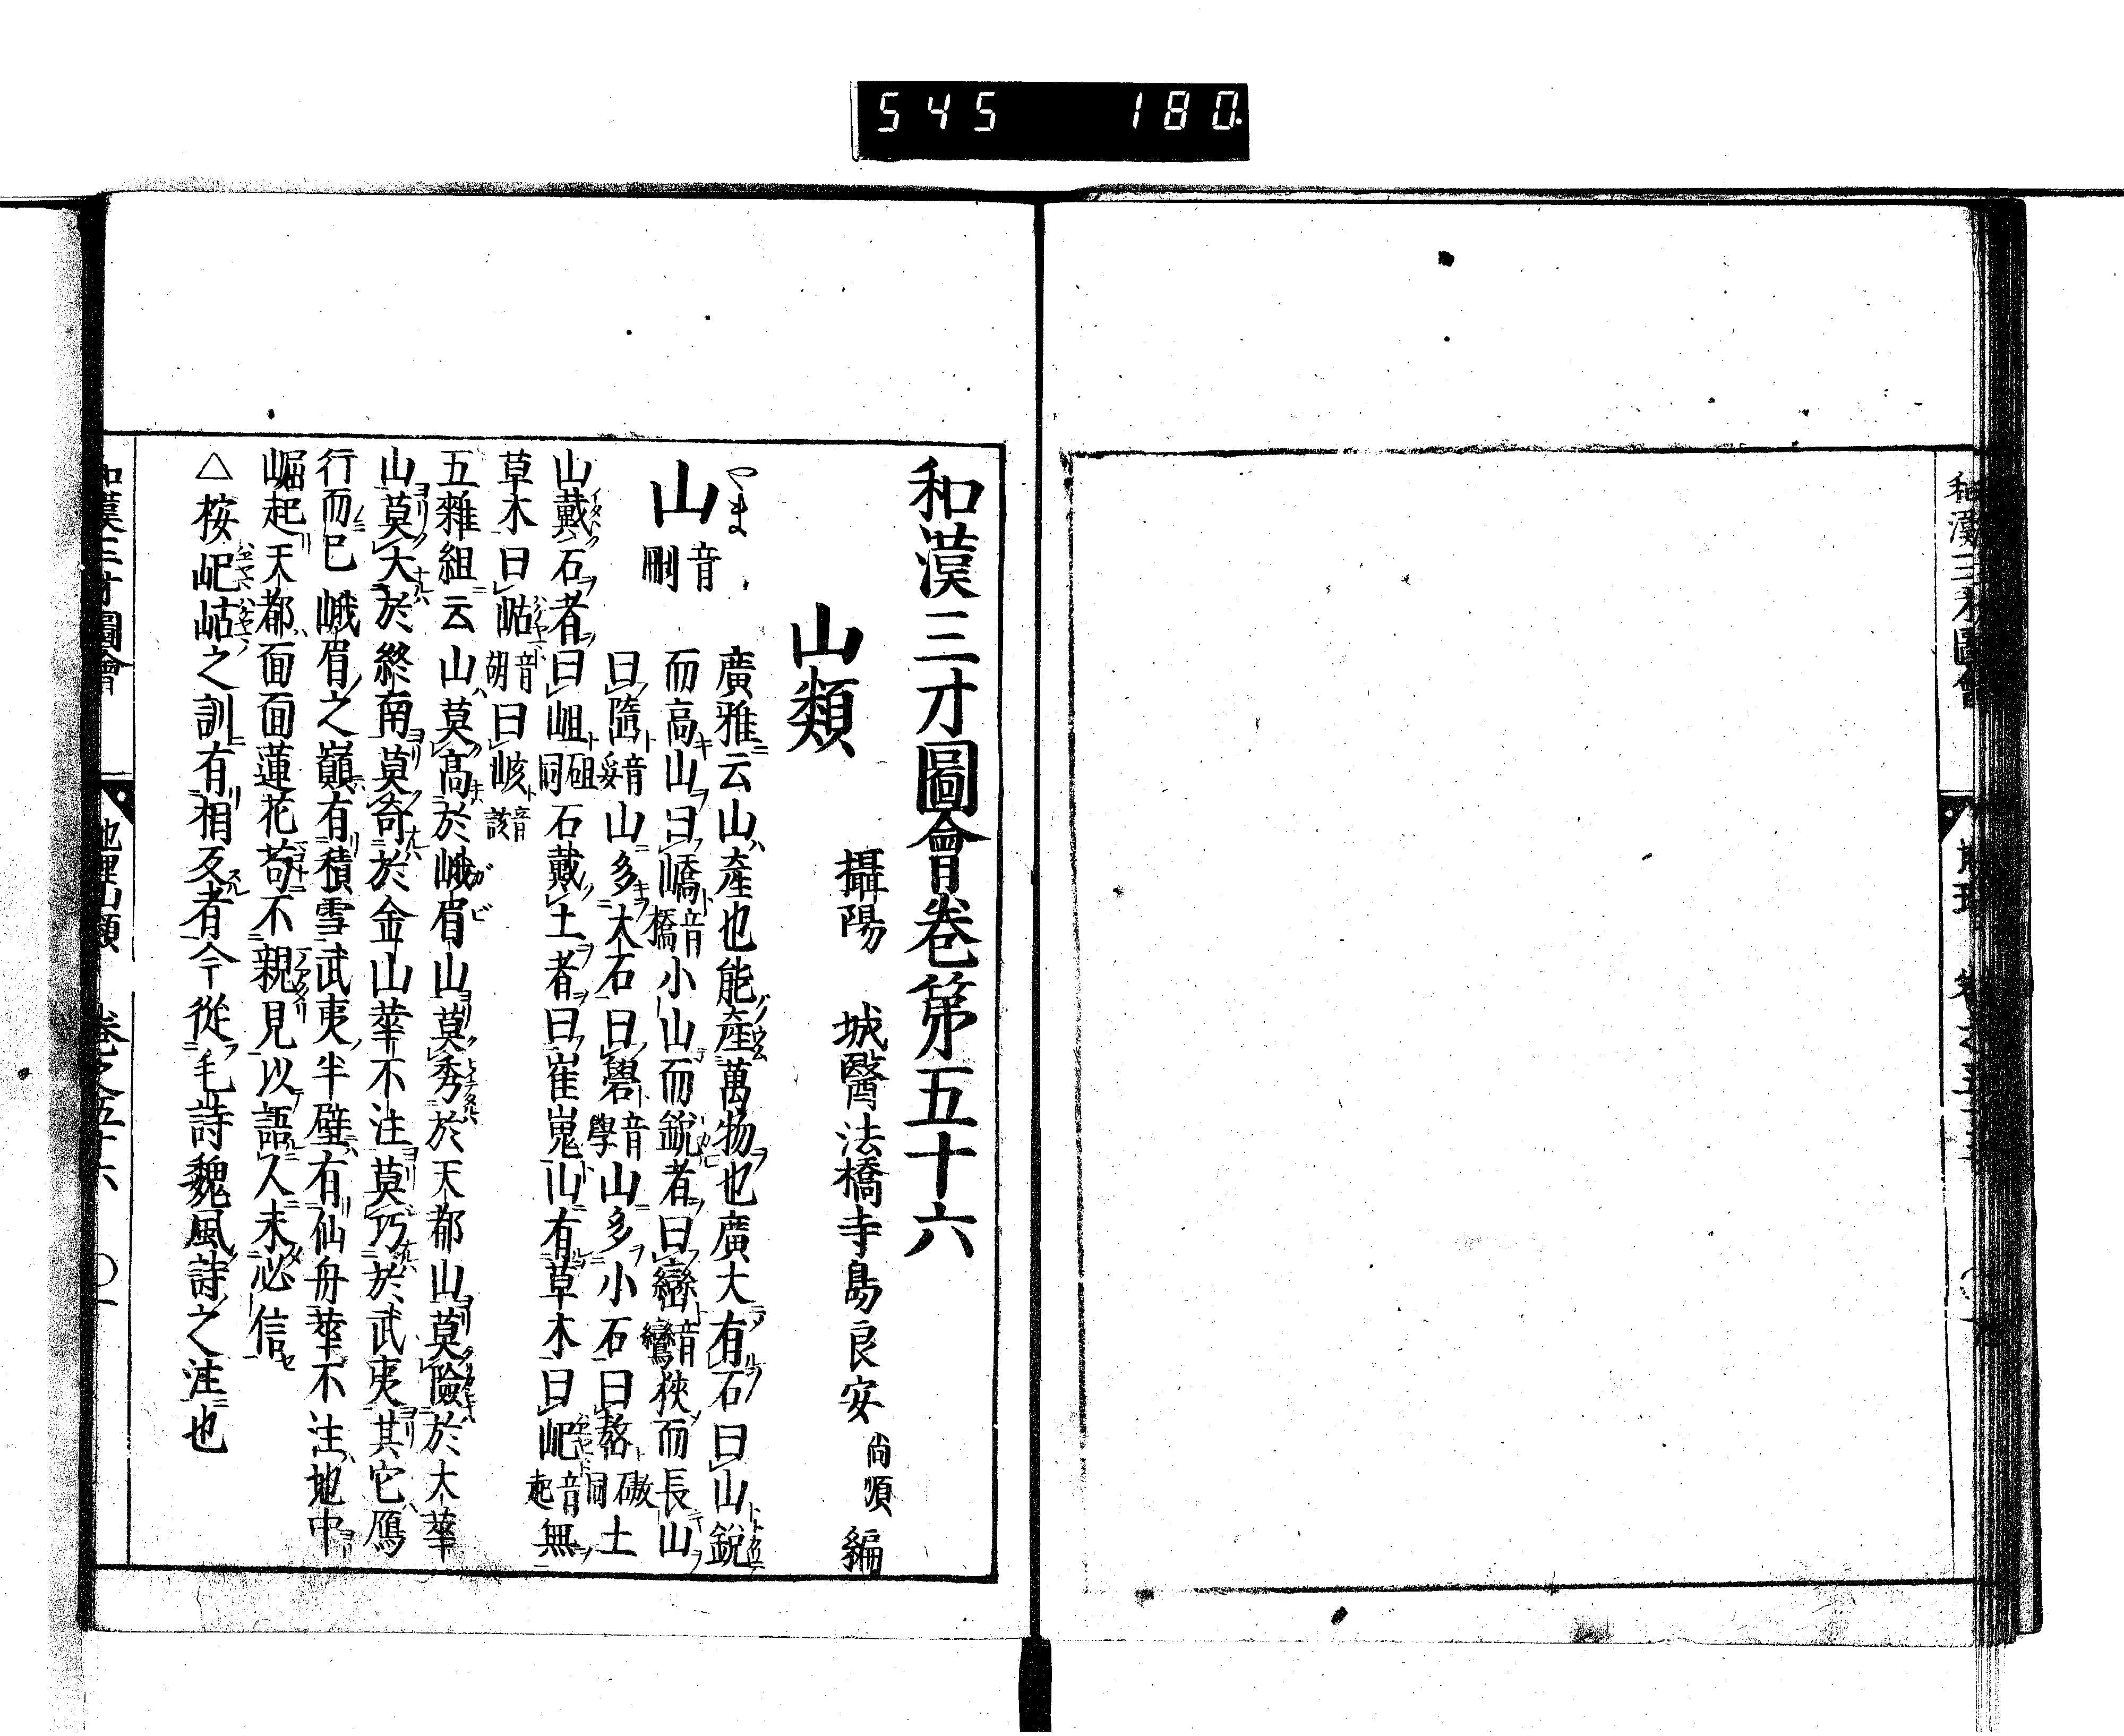 545 180
和漢三才圖會卷第五十六
攝陽 城醫法橋寺島良安尚順編
山類
山 やま 音刪
廣雅云山產也能產萬物也廣大有石曰山銳
而高山曰嶠音橋小山而銳者曰巒音鸞狹而長山
曰嶞音妥山多大石曰礐音學山多小石曰磝同土
山戴石者曰岨砠同石戴土者曰崔嵬山有草木曰屺音起無
草木曰岵音胡曰峐音該
五雜組云山莫高於峨眉山莫秀於天都山莫險於大華
山莫大於終南莫奇於金山華不注莫巧於武夷其它鴈
行而已峨眉之巔有積雪武夷半壁有仙舟華不注地中
崛起天都面面蓮花苟不親見以語人未必信
△按屺岵之訓有相反者今從毛詩魏風詩之注也
和漢三才圖會 地理山類 卷之五十六 〇一
和漢三才圖會